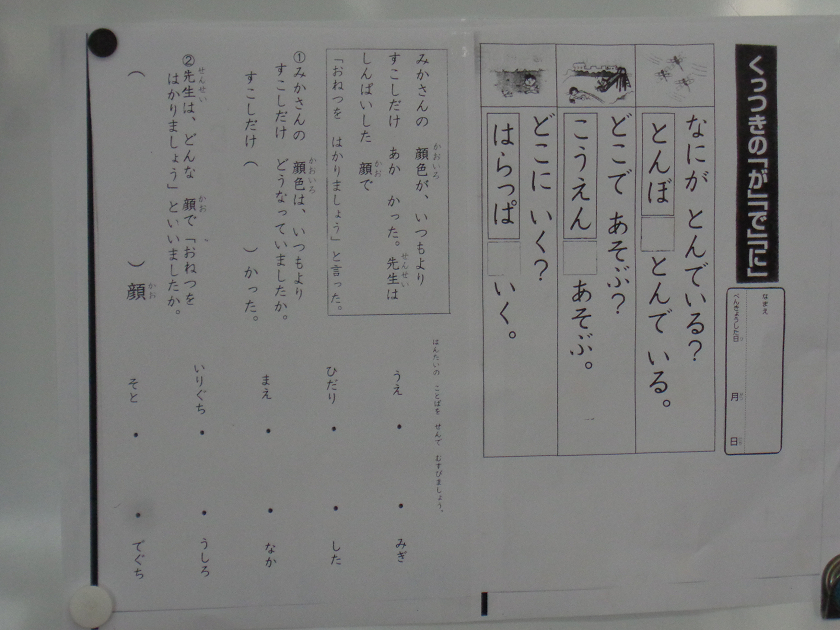 くっつきの「が」「で」「に」
なまえ
べんきょうした日 月 日
なにが とんでいる?
とんぼ とんで いる。
どこで あそぶ?
こうえん あそぶ。
どこに いく?
はらっぱ いく。
みかさんの 顔色が、いつもより
すこしだけ あか かった。先生は
しんぱいした 顔で
「おねつを はかりましょう」と言った。
①みかさんの 顔色は、いつもより
すこしだけ どうなっていましたか。
すこしだけ ( ) かった。
②先生は、どんな 顔で「おねつを
はかりましょう」といいましたか。
( ) 顔
はんたいの ことばを せんで むすびましょう。
うえ ・ ・ みぎ
ひだり ・ ・ した
まえ ・ ・ なか
いりぐち ・ ・ うしろ
そと ・ ・ でぐち